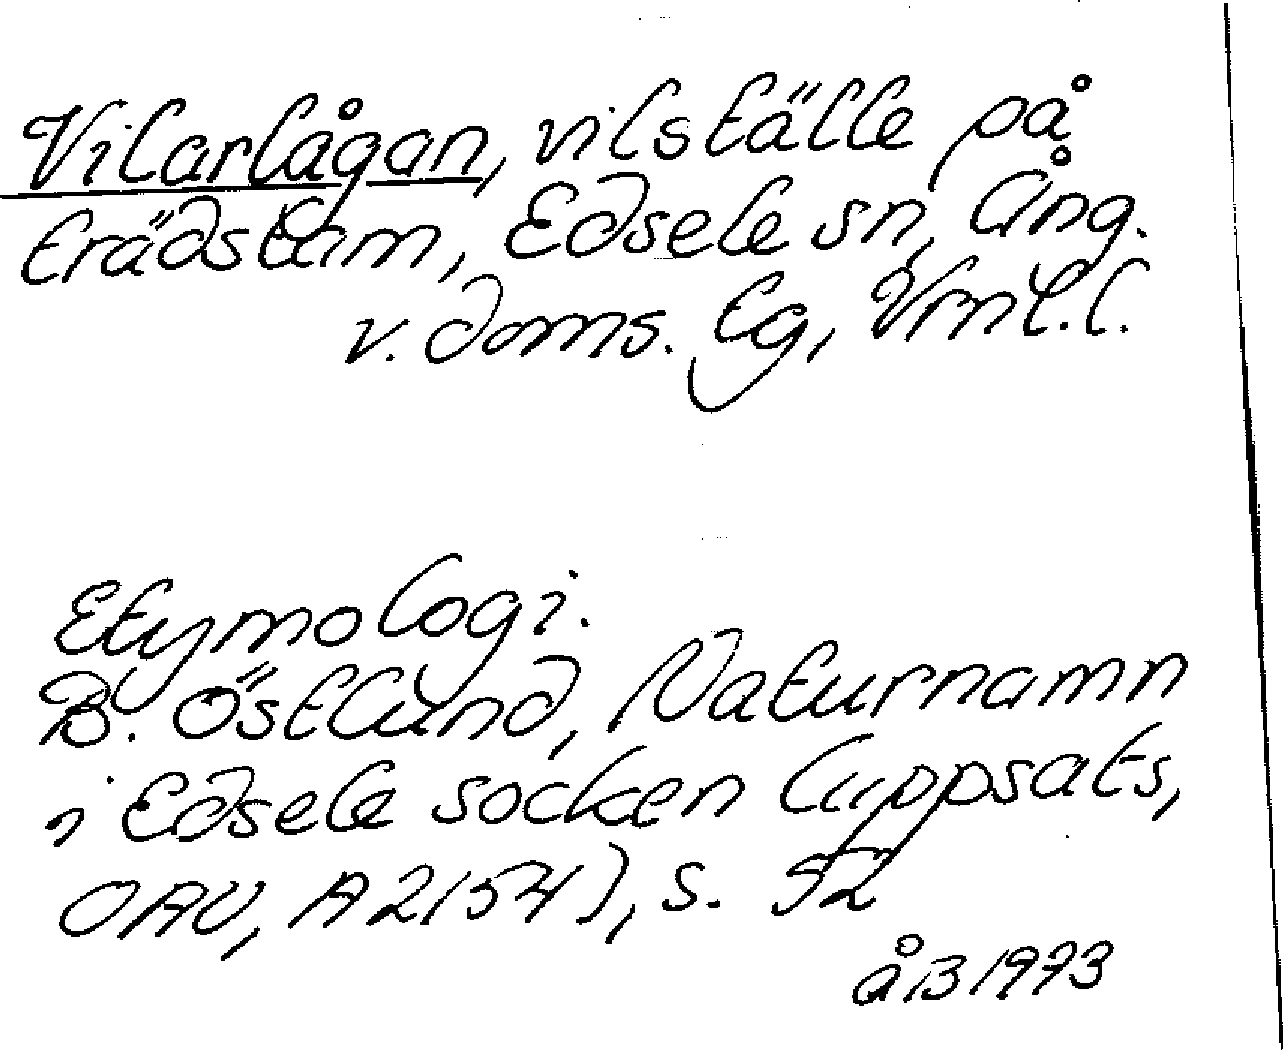 Vilarlågan, vilställe på
trädstam, Edsele sn, Ång.
v. doms. lg, Vrnl.l.
Etymologi.
B. Östlund, Naturnamn
i Edsele socken (uppsats,
OAU, A2154), s. 52
åB 1973